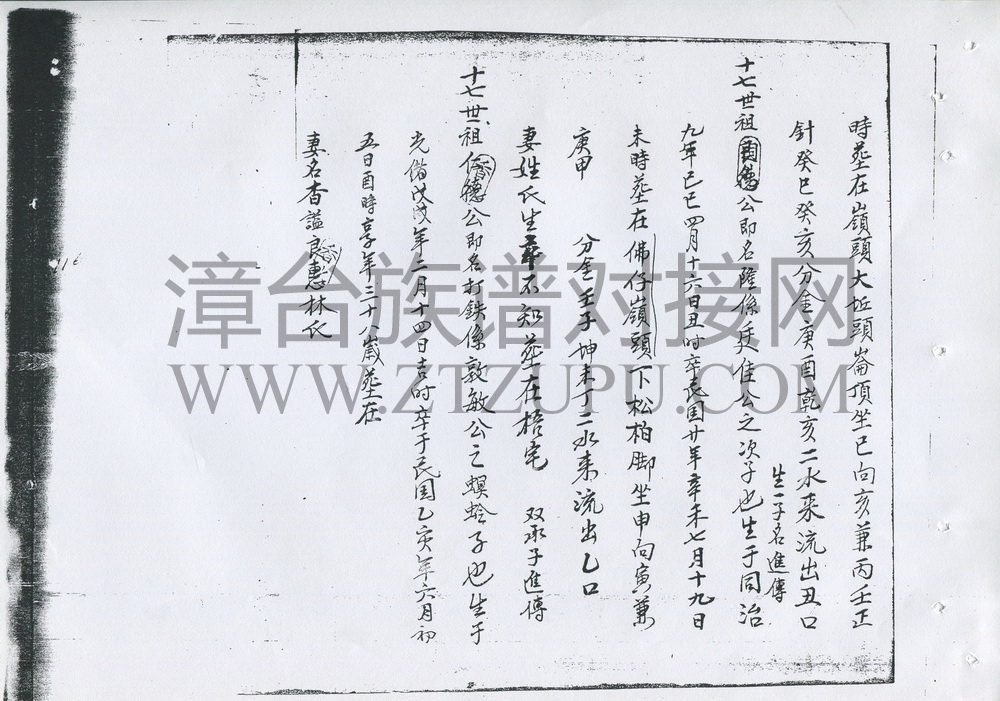 時葬在嶺頭大坵頭崙頂坐巳向亥兼丙壬正
針癸巳癸亥分金庚酉乾亥二水來流出丑口
生一子名進傳
十七世祖德公即名隆係廷佳公之次子也生于同治
九年己巳四月十六日丑时卒民国廿年辛未七月十九日
未時葬在佛仔嶺頭下松柏脚坐申向寅兼
庚甲 分金壬子坤未丁二水来流出乙口
妻姓氏生卒不知葬在梧宅 双承子進傳
十七世祖德公即名打鉄係敦敏公之螟蛉子也生于
光绪戊戌年二月十四日吉时卒于民国乙亥年六月初
五日酉時享年三十八歲葬在
妻名杏謚良惠林氏
116
漳台族谱对接网
WWW.ZTZUPU.COM